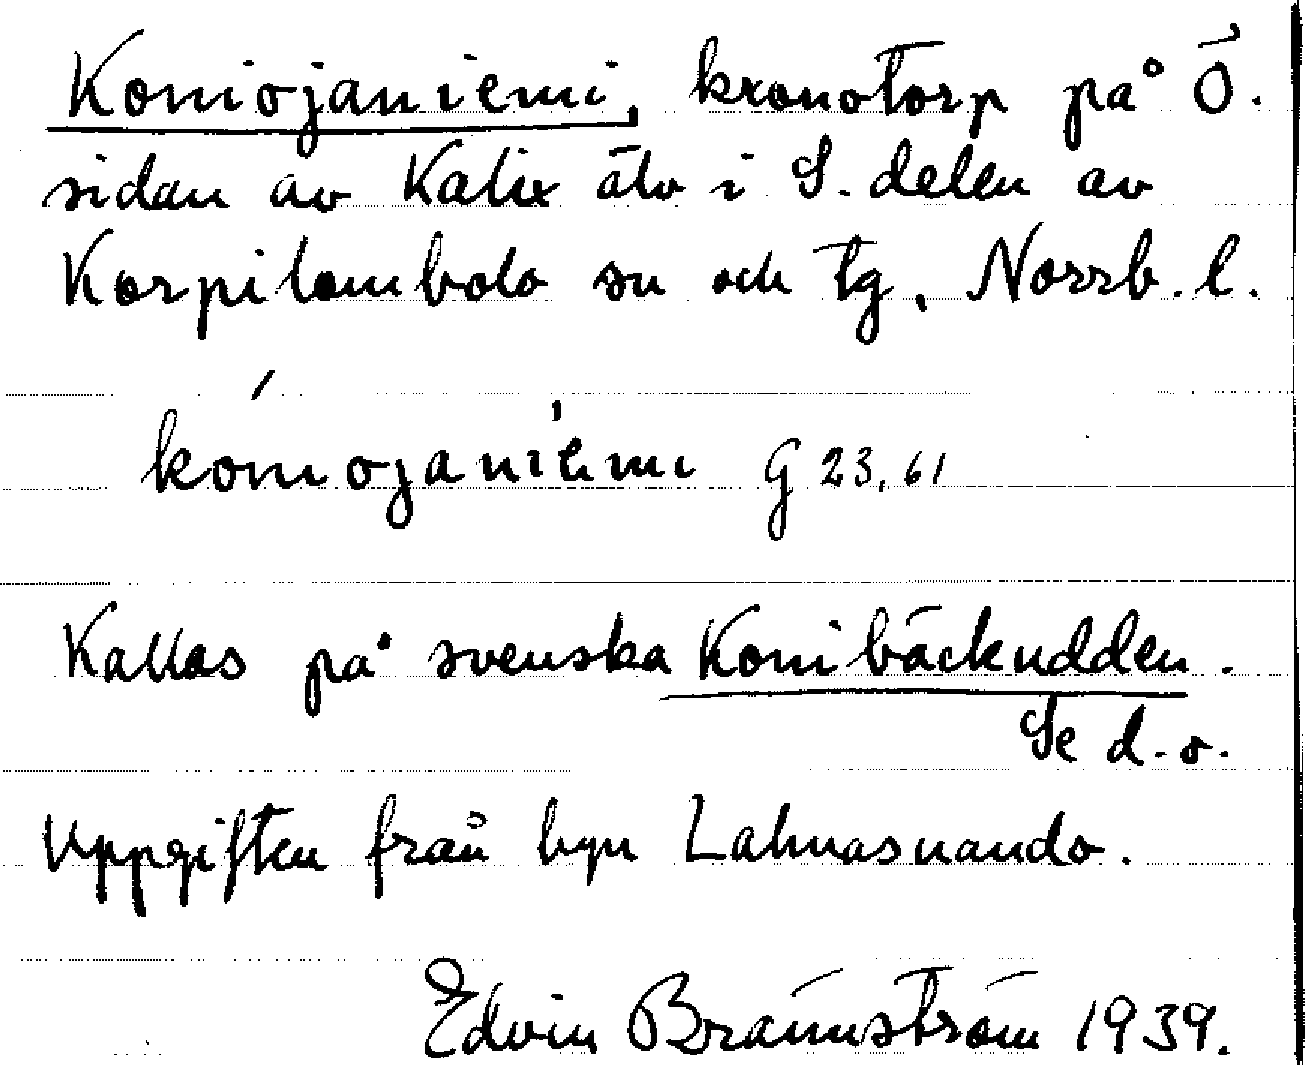 Komiojaniemi, kronotorp på Ö.
sidan av Kalix älv i S. delen av
Korpilombolo sn och tg, Norrb. l.
komojaniemi G 23,61
Kallas på svenska Komibäckudden.
Se d. o.
Uppgiften från byn Lahnasuando.
Edvin Brännström 1939.